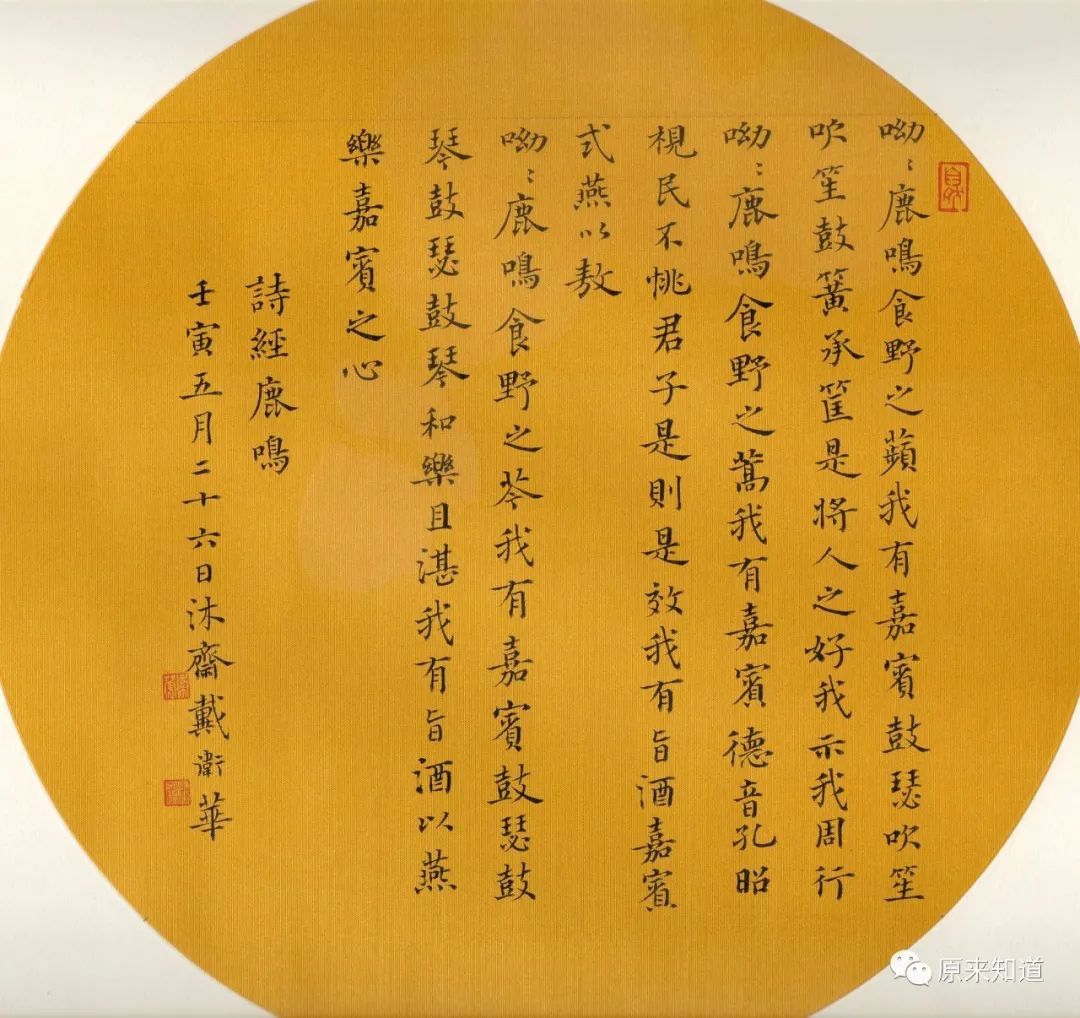 呦〻鹿鳴食野之蘋我有嘉賓鼓瑟吹笙
吹笙鼓簧承筐是將人之好我示我周行
呦〻鹿鳴食野之蒿我有嘉賓德音孔昭
視民不恌君子是則是效我有旨酒嘉賓
式燕以敖
呦〻鹿鳴食野之芩我有嘉賓鼓瑟鼓
琴鼓瑟鼓琴和樂且湛我有旨酒以燕
樂嘉賓之心
詩經鹿鳴
壬寅五月二十六日沐齋戴衛華
原来知道